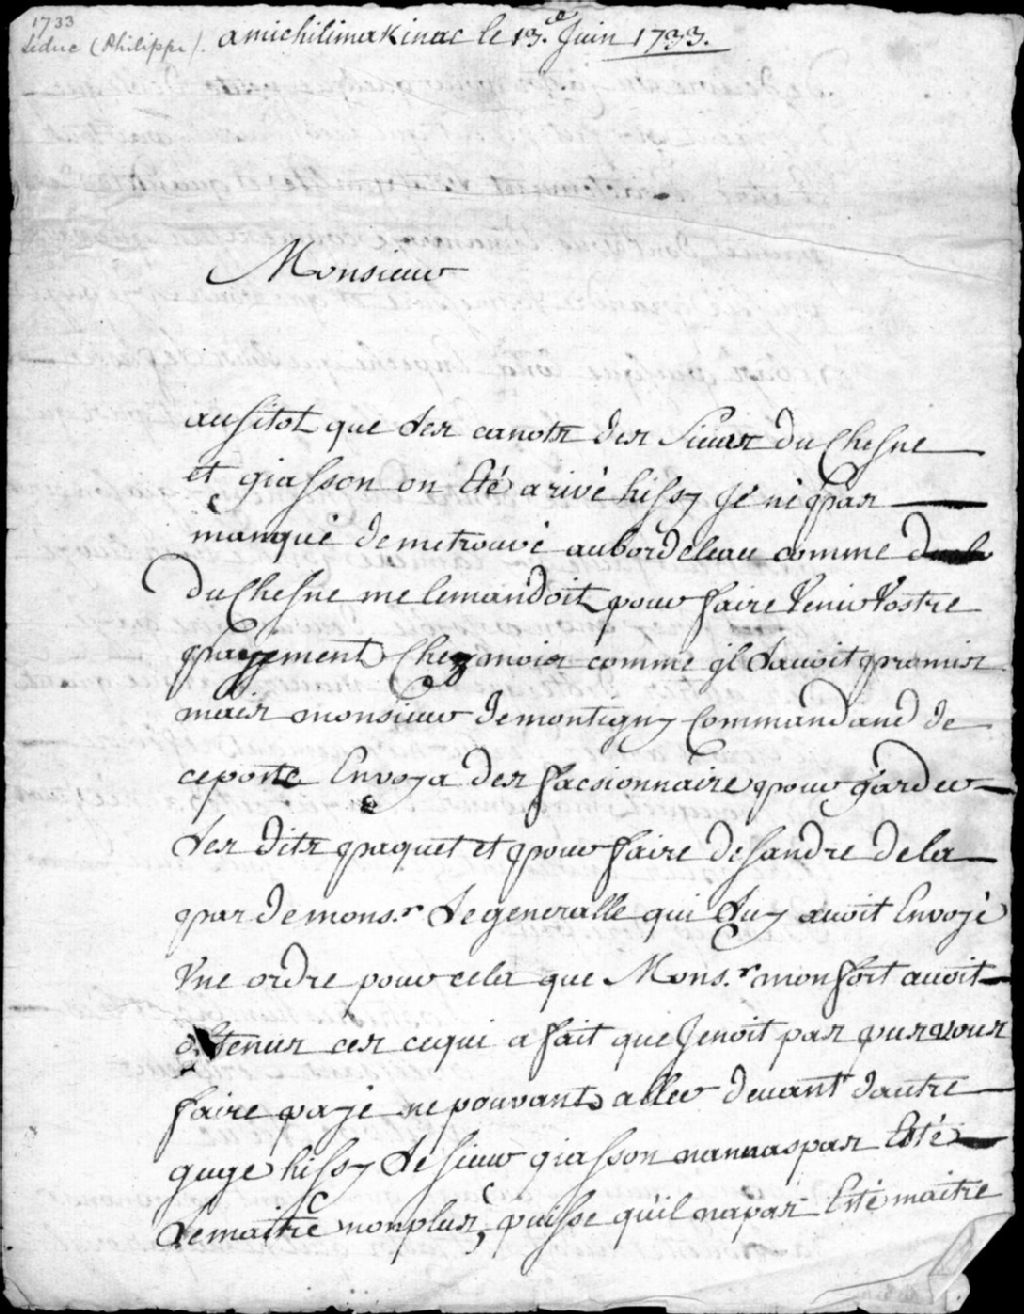 1733
Leduc (Philippe). a michilimakinac le 13.e Juin 1733.
Monsieur
ausitot que Les canots des Sieurs du Chesne
et giasson on Eté arivé hissy Je né pas
manqué de me trouvé au bord de leau comme
Du Chesne me le mandoit pour faire venir vostre
payement Chez moi comme il Lavoit promis
mais monsieur de montigny Commandand de
ce poste Envoya des facsionnaire pour garder
Les dits paquet et pour faire desandre de la
par de mons.r Le generalle qui Luy avoit Envoyé
Vne ordre pour cela que Mons.r monfort avoit
obtenus ces ce qui a fait que Je noit pas pus vous
faire payé ne pouvant aller devant dautre
guge hissy Le sieur giasson nannas pas Esté
Le maitre non plus, puisse quil na pas Esté maitre